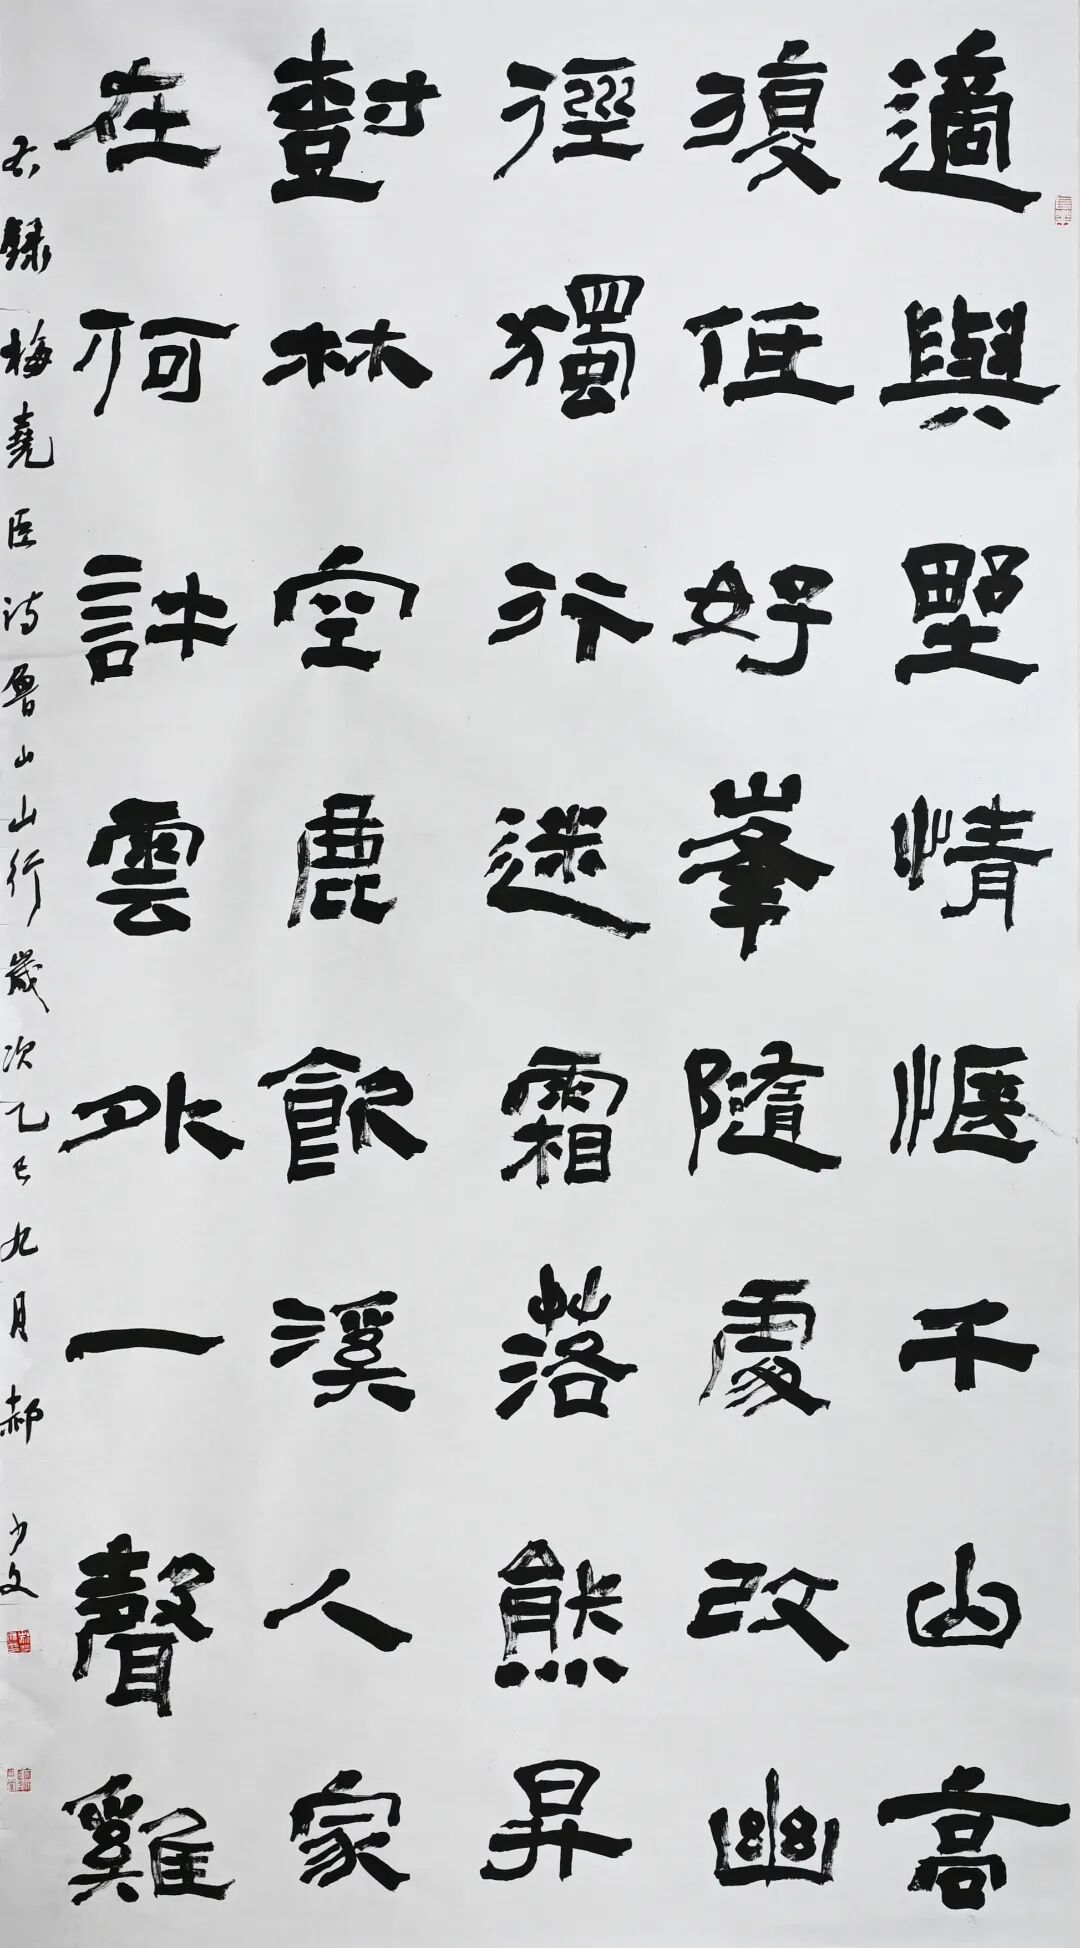 適與野情愜千山高
復低好峯隨處改幽
徑獨行迷霜落熊昇
樹林空鹿飲溪人家
在何許雲外一聲雞
右録梅堯臣詩魯山山行歲次乙巳九月郝少文